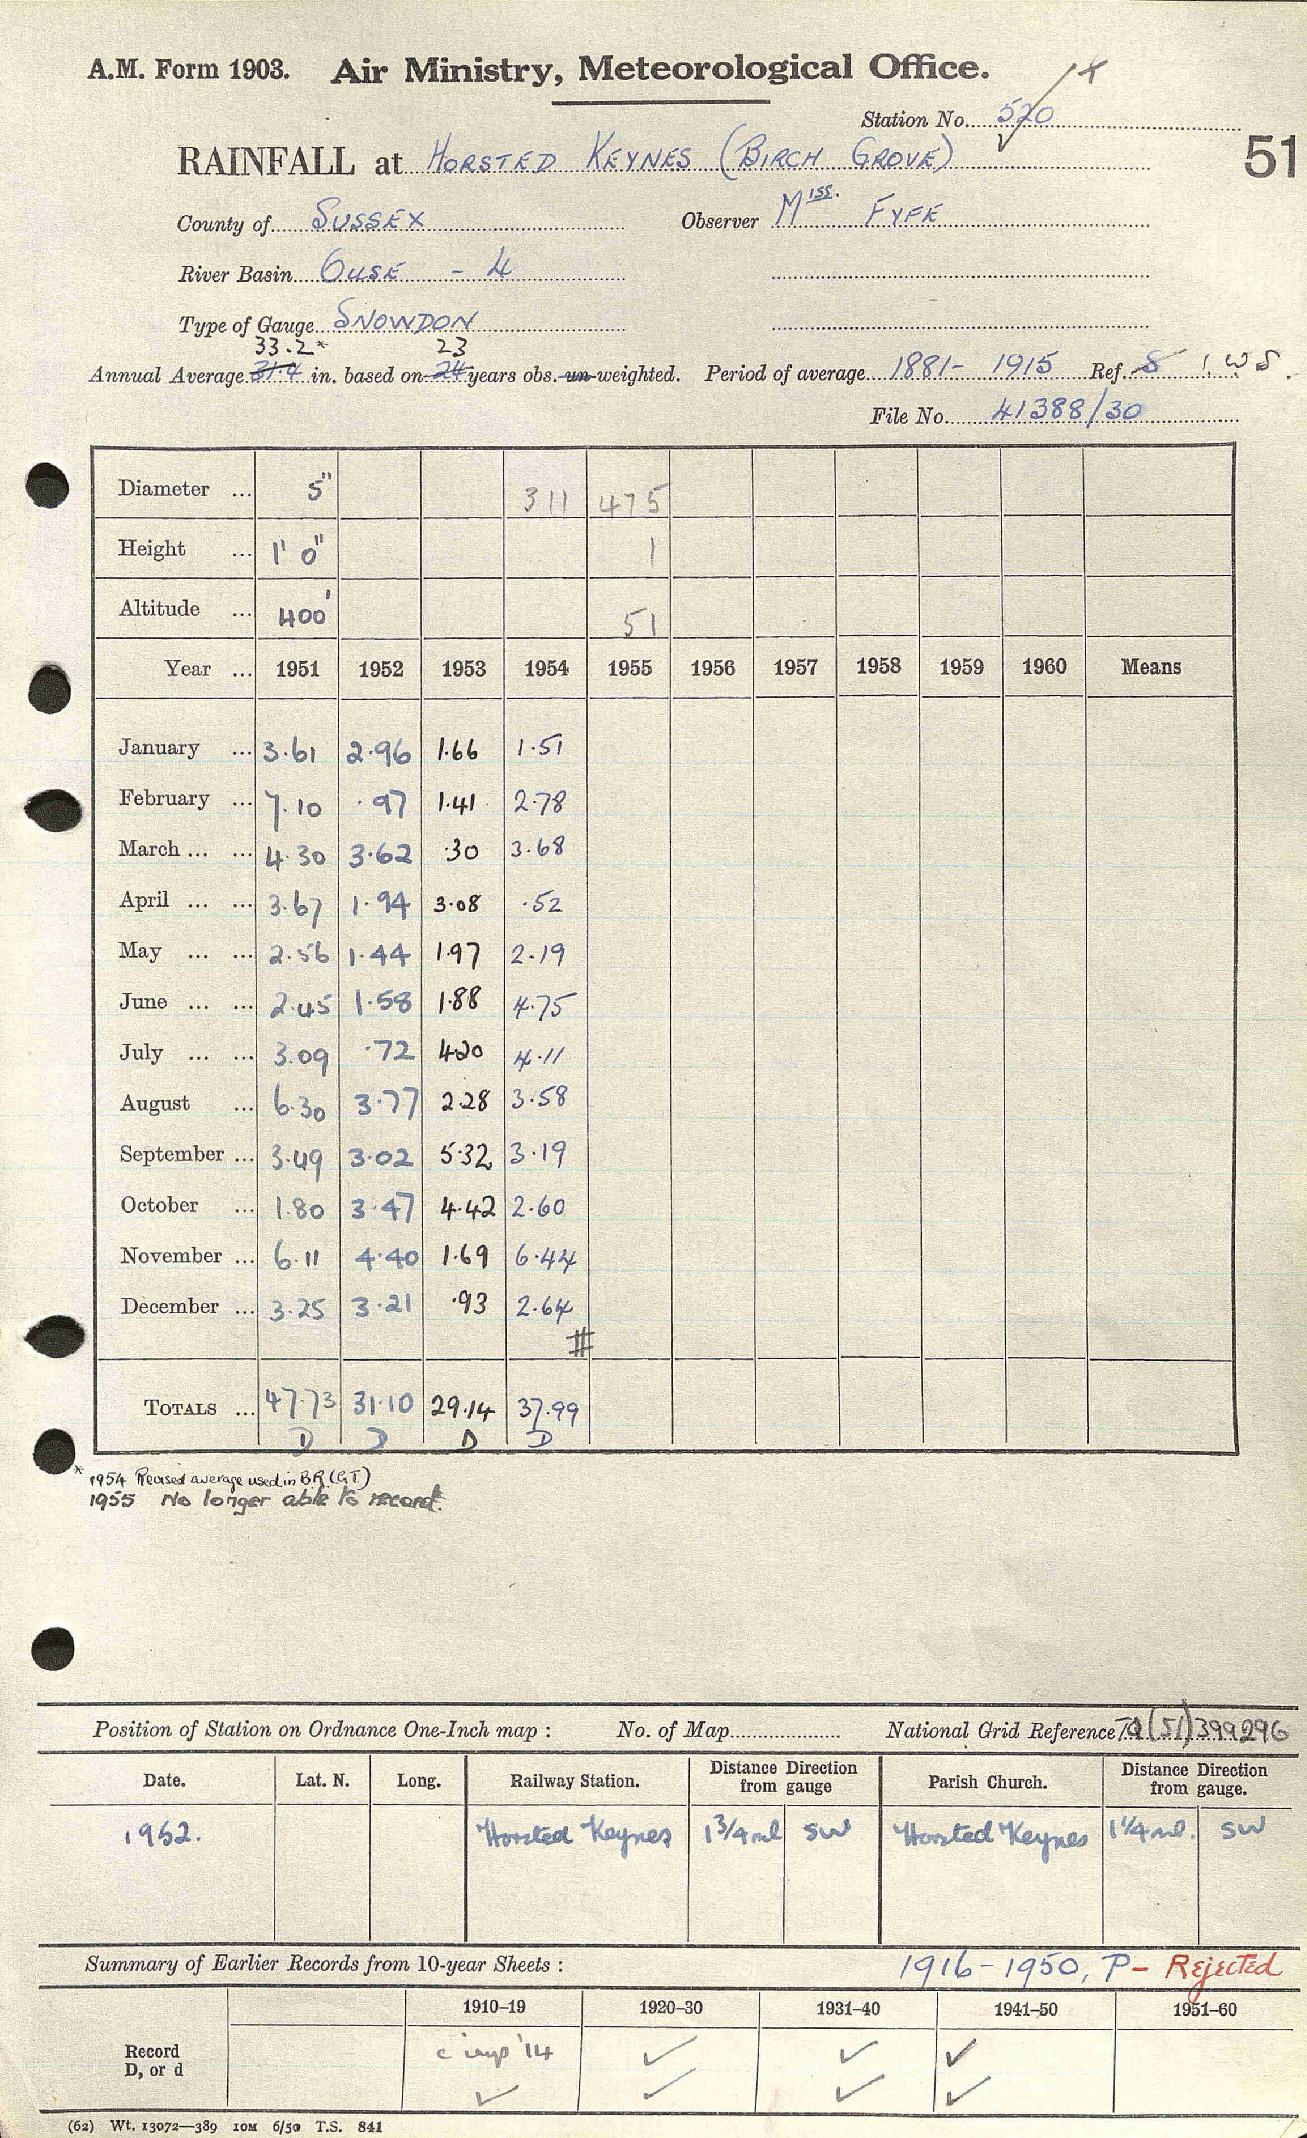 A.M. Form 1903. Air Ministry, Meteorological Office.
Station No. 520
51
RAINFALL at HORSTED KEYNES (BIRCH GROVE)
County of SUSSEX Observer Miss. FYFE
River Basin OUSE - 4
Type of Gauge SNOWDON
33.2* 23
Annual Average 31.4 in. based on 24 years obs. un-weighted. Period of average 1881- 1915 Ref. S 1. W S.
File No. 41388/30
Diameter ... 5" 311 475
Height ... 1' 0" 1
Altitude ... 400' 51
Year ... 1951 1952 1953 1954 1955 1956 1957 1958 1959 1960 Means
January ... 3.61 2.96 1.66 1.51
February ... 7.10 .97 1.41 2.78
March ... ... 4.30 3.62 .30 3.68
April ... ... 3.67 1.94 3.08 .52
May ... ... 2.56 1.44 1.97 2.19
June ... ... 2.45 1.58 1.88 4.75
July ... ... 3.09 .72 4.20 4.11
August ... 6.30 3.77 2.28 3.58
September ... 3.49 3.02 5.32 3.19
October ... 1.80 3.47 4.42 2.60
November ... 6.11 4.40 1.69 6.44
December ... 3.25 3.21 .93 2.64
#
TOTALS ... 47.73 31.10 29.14 37.99
D D D D
* 1954 Revised average used in BR (GT)
1955 No longer able to record.
Position of Station on Ordnance One-Inch map : No. of Map National Grid Reference TQ (51) 399296
Date. Lat. N. Long. Railway Station. Distance from gauge Direction Parish Church. Distance from gauge. Direction
1952. Horsted Keynes 1 3/4 ml SW Horsted Keynes 1 1/4 ml. SW
Summary of Earlier Records from 10-year Sheets : 1916-1950, P- Rejected
1910-19 1920-30 1931-40 1941-50 1951-60
Record D, or d c '14 ✓ ✓ ✓
✓ ✓ ✓ ✓
(62) Wt. 13072—389 10M 6/50 T.S. 841